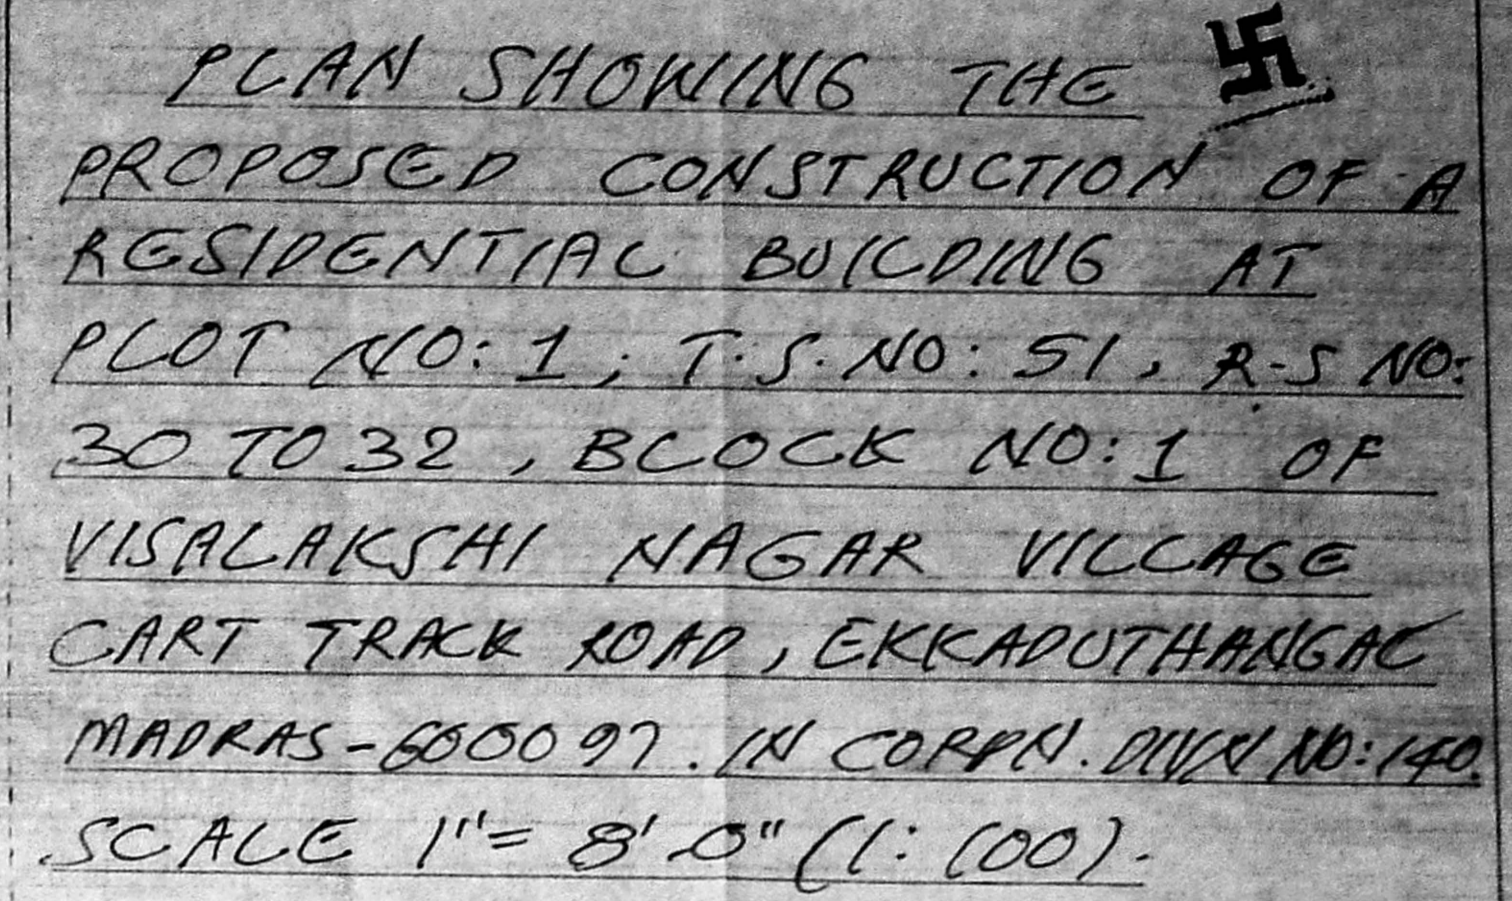 PLAN SHOWING THE 卐
PROPOSED CONSTRUCTION OF A
RESIDENTIAL BUILDING AT
PLOT NO: 1, T.S. NO: 51, R.S NO:
30 TO 32, BLOCK NO: 1 OF
VISALAKSHI NAGAR VILLAGE
CART TRACK ROAD, EKKADUTHANGAL
MADRAS-600097. IN CORPN. DIVN NO: 140.
SCALE 1"= 8'-0" (1: 100).